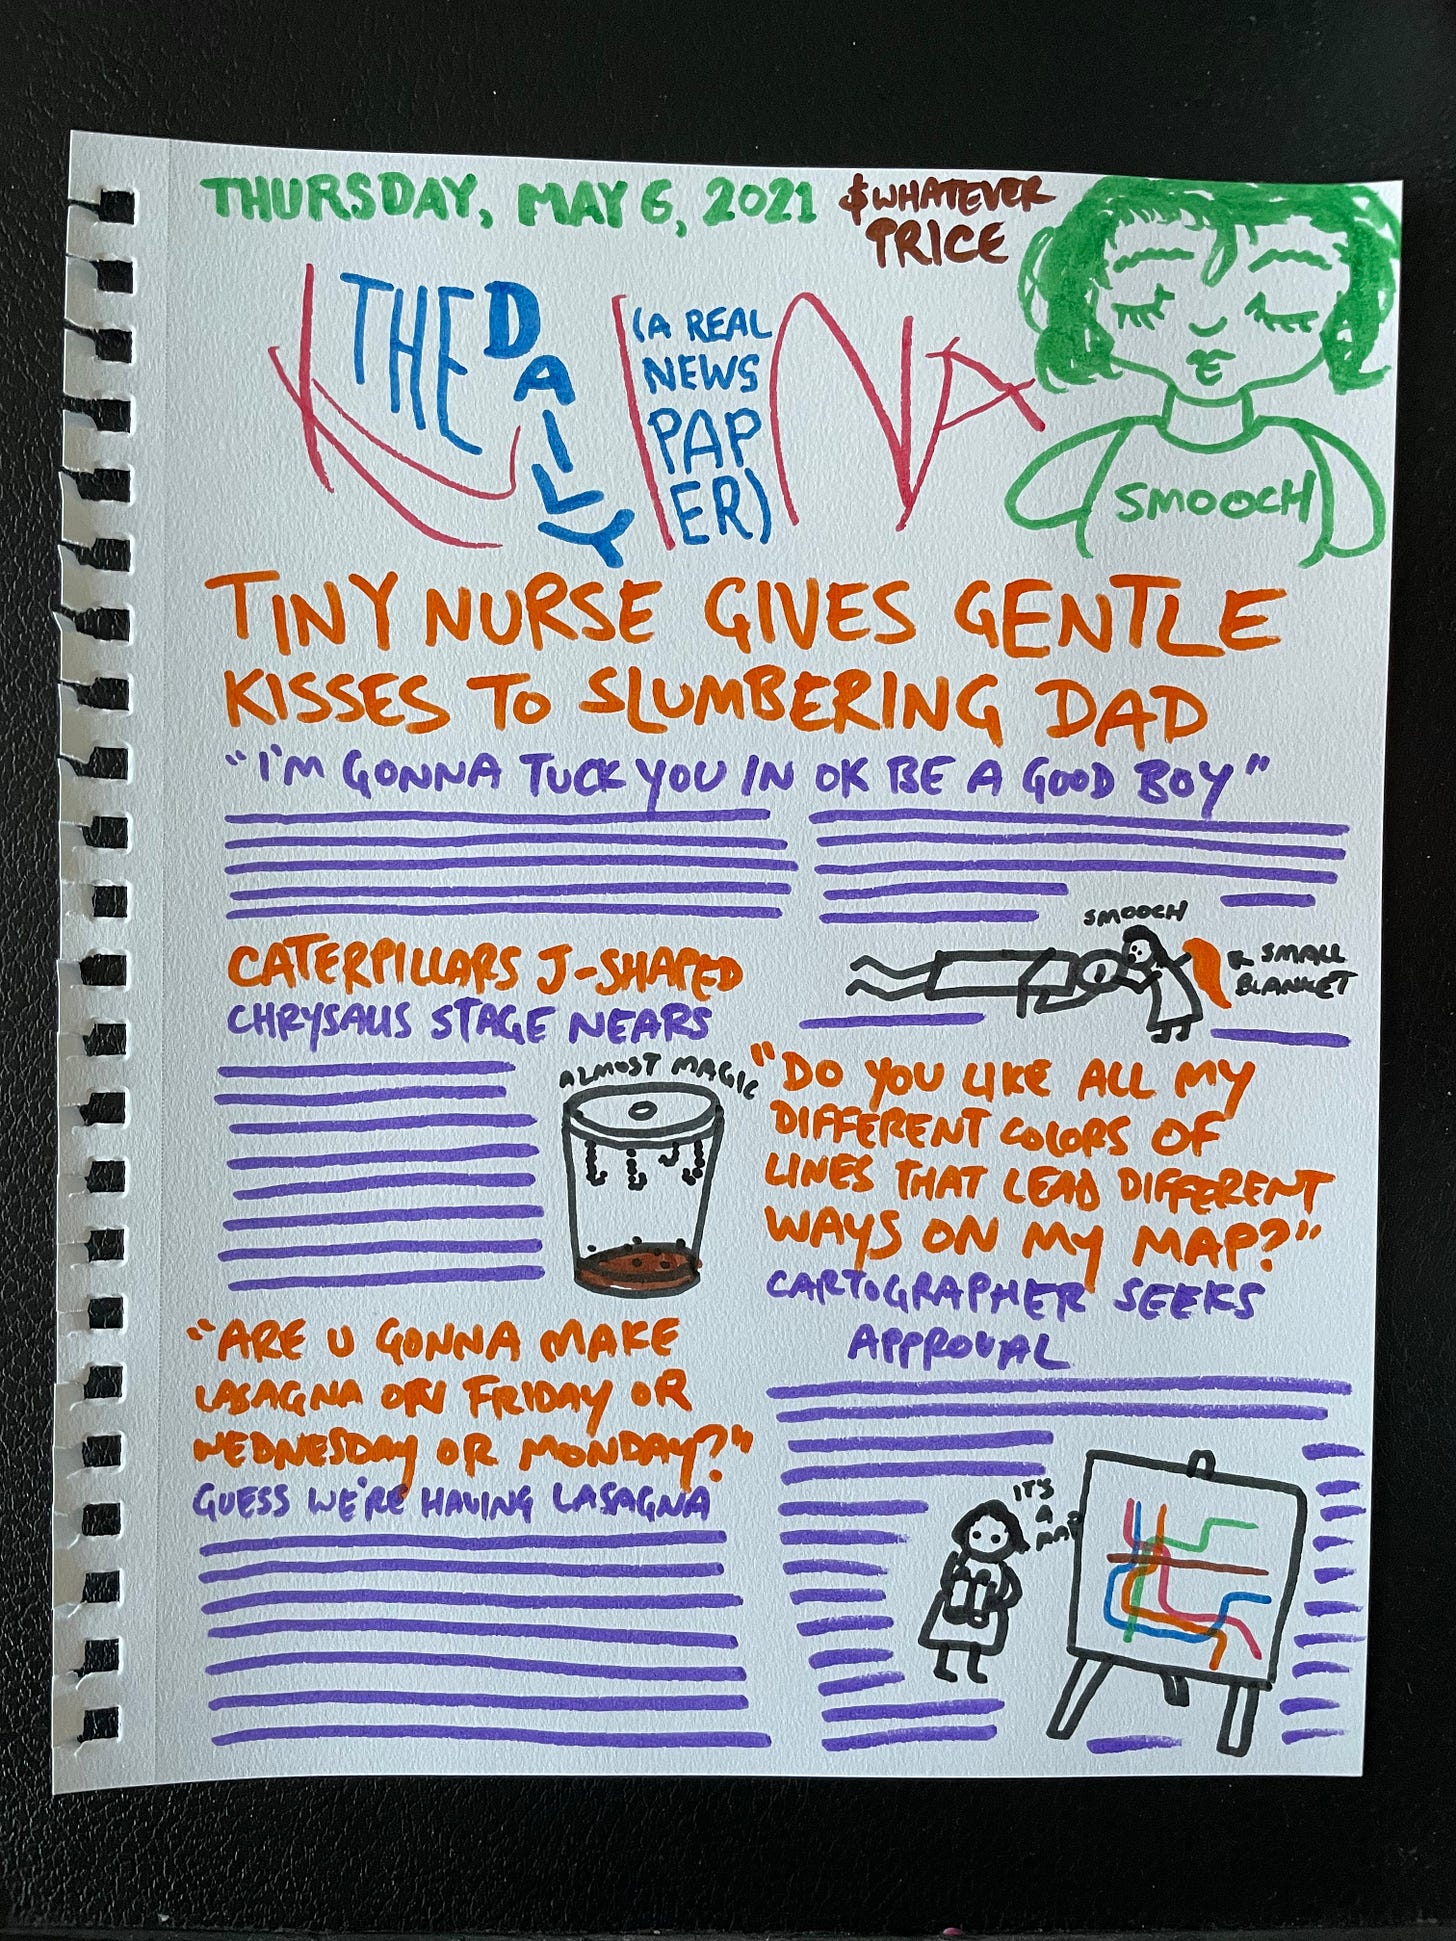 THURSDAY, MAY 6, 2021
$WHATEVER
PRICE
THE DAILY
KINA
(A REAL
NEWS
PAP
ER)
SMOOCH
TINY NURSE GIVES GENTLE
KISSES TO SLUMBERING DAD
"I'M GONNA TUCK YOU IN OK BE A GOOD BOY"
SMOOCH
SMALL
BLANKET
CATERPILLARS J-SHAPED
CHRYSALIS STAGE NEARS
ALMOST MAGIC
"DO YOU LIKE ALL MY
DIFFERENT COLORS OF
LINES THAT LEAD DIFFERENT
WAYS ON MY MAP?"
CARTOGRAPHER SEEKS
APPROVAL
IT'S
A
MAP
"ARE U GONNA MAKE
LASAGNA ON FRIDAY OR
WEDNESDAY OR MONDAY?"
GUESS WE'RE HAVING LASAGNA